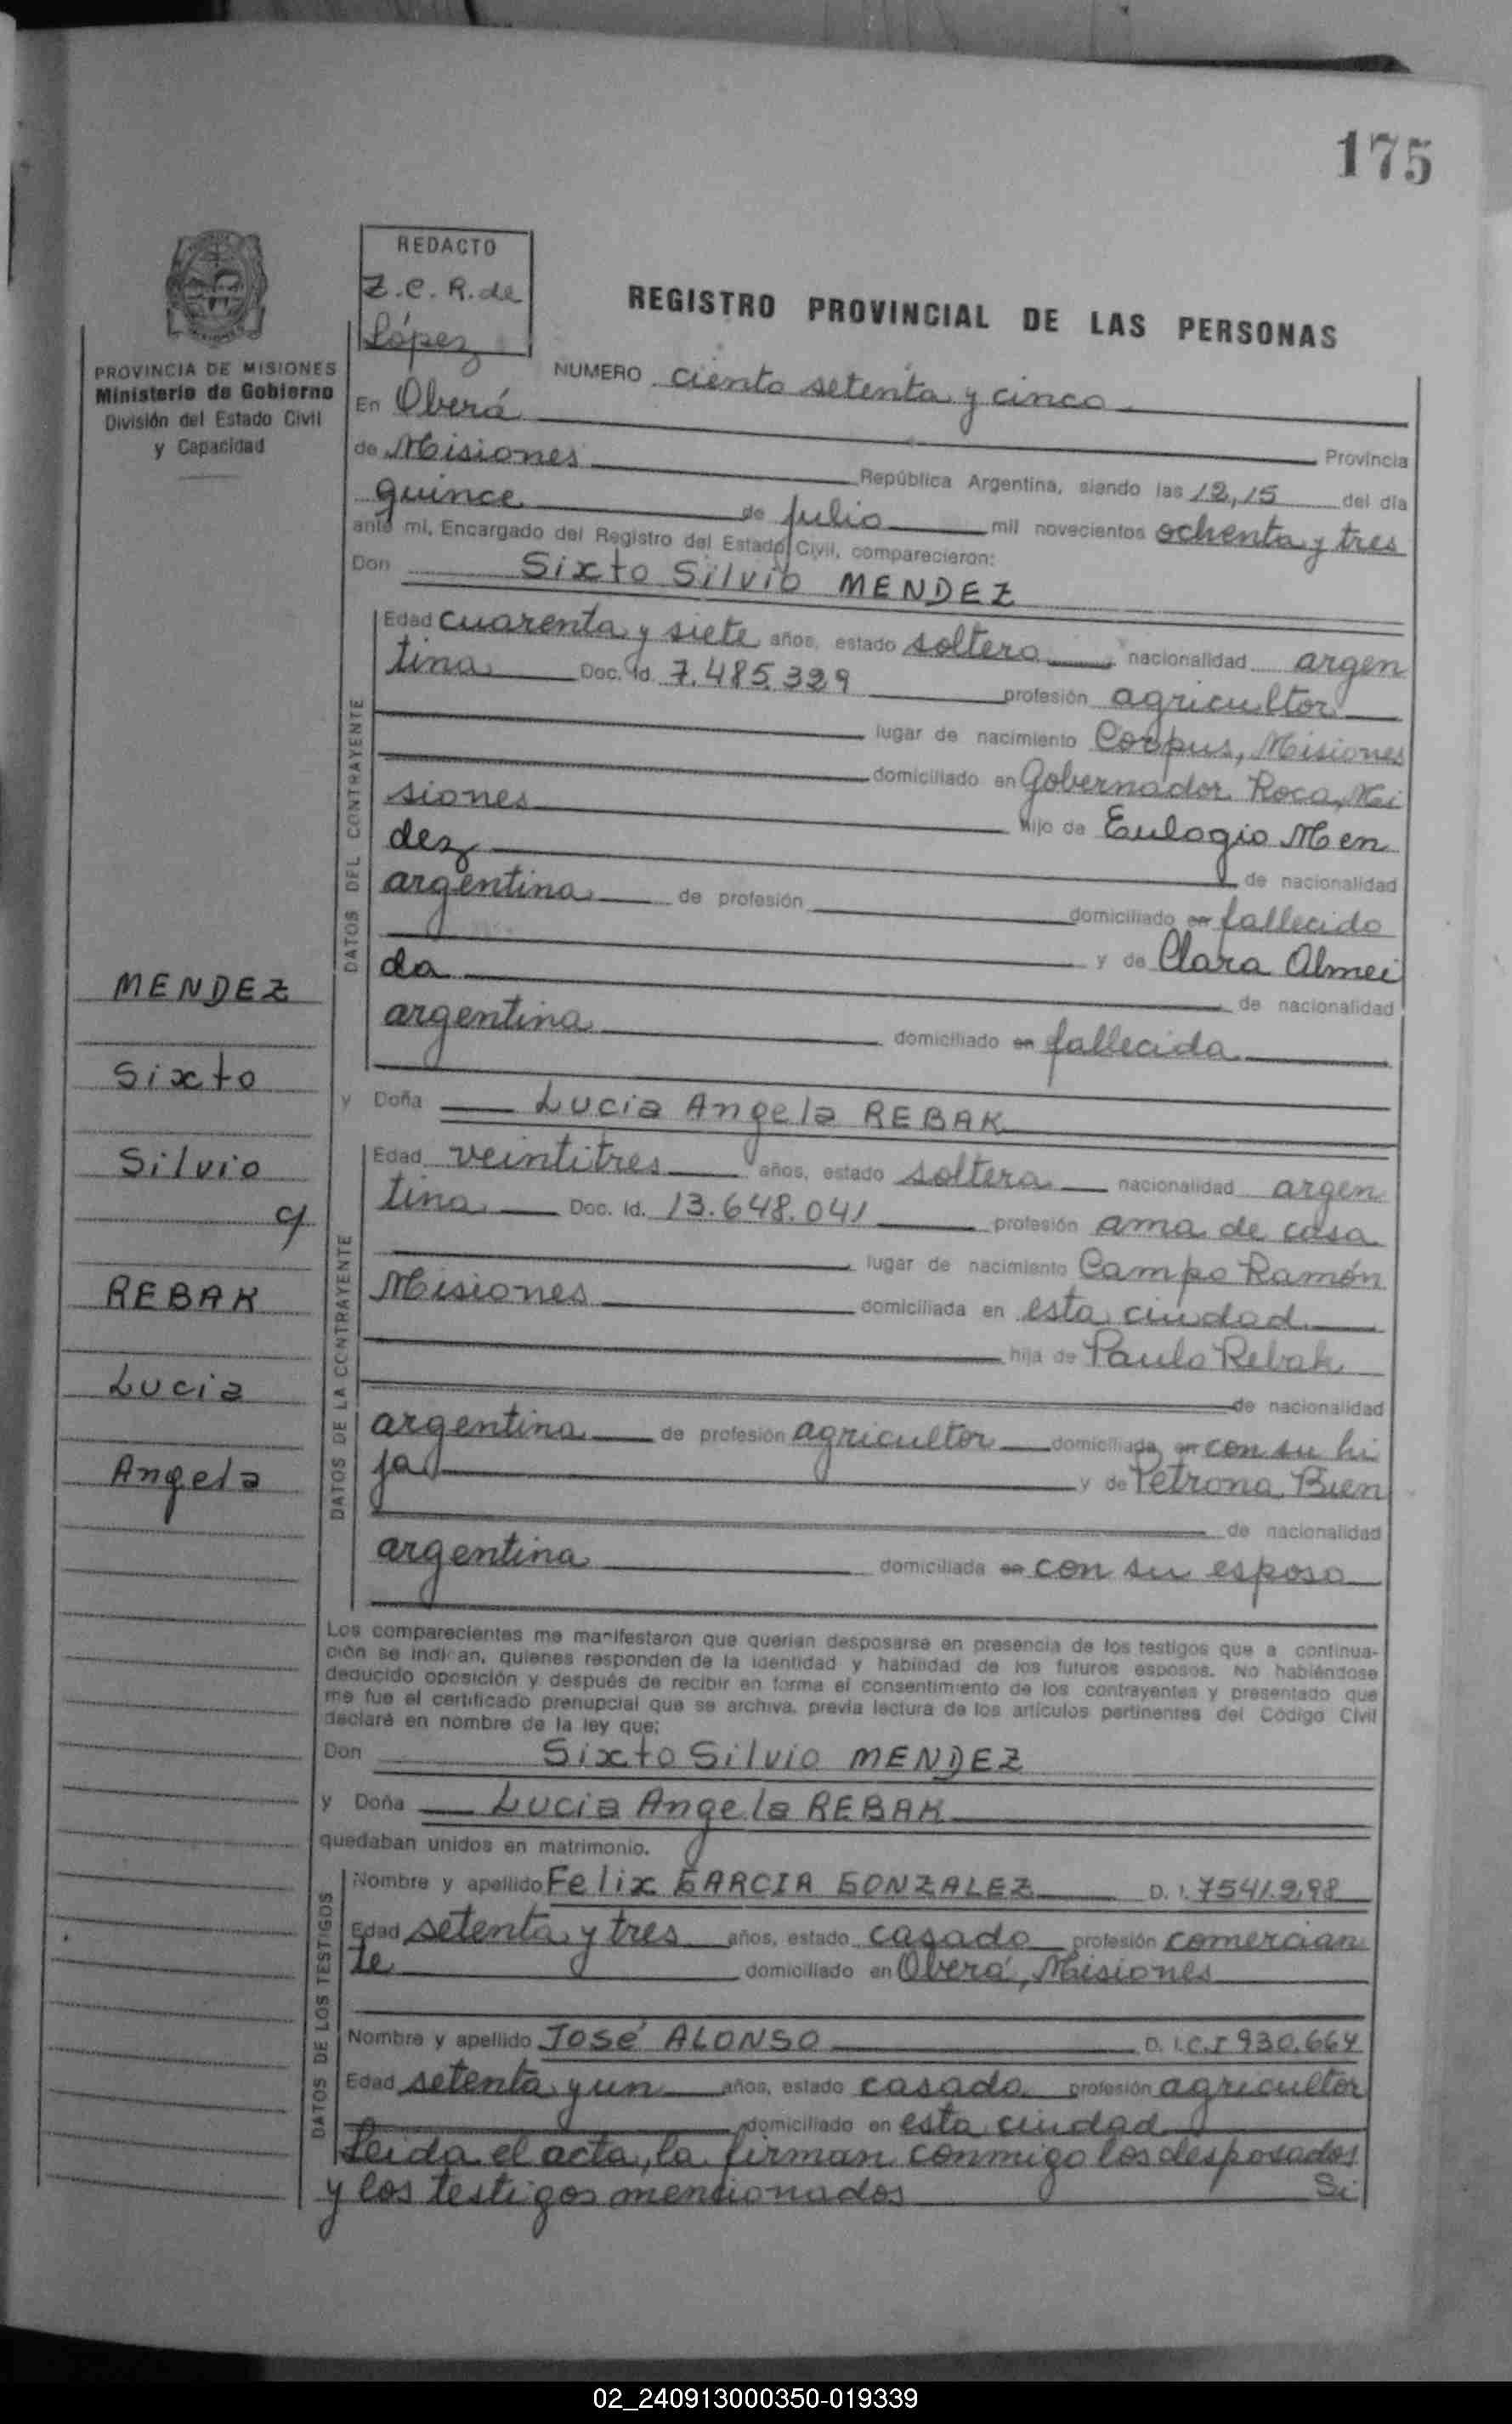 175
REDACTO
Z.C.R. de
López
REGISTRO PROVINCIAL DE LAS PERSONAS
PROVINCIA DE MISIONES
Ministerio de Gobierno
División del Estado Civil
y Capacidad
NUMERO ciento setenta y cinco
En Oberá
Provincia
de Misiones República Argentina, siendo las 12,15 del día
quince de julio mil novecientos ochenta y tres
ante mi, Encargado del Registro del Estado Civil, comparecieron:
Don Sixto Silvio MENDEZ
DATOS DEL CONTRAYENTE
Edad cuarenta y siete años, estado soltero nacionalidad argen
tina Doc. Id. 7.485.329 profesión agricultor
lugar de nacimiento Corpus, Misiones
domiciliado en Gobernador Roca, Mi
siones hijo de Eulogio Men
dez de nacionalidad
argentina de profesión domiciliado en fallecido
y de Clara Almei
da de nacionalidad
argentina domiciliado en fallecida
y Doña Lucia Angela REBAK
DATOS DE LA CONTRAYENTE
Edad veintitres años, estado soltera nacionalidad argen
tina Doc. Id. 13.648.041 profesión ama de casa
lugar de nacimiento Campo Ramón
Misiones domiciliada en esta ciudad
hija de Paulo Rebak
de nacionalidad
argentina de profesión agricultor domiciliada en con su hi
ja y de Petrona Bien
de nacionalidad
argentina domiciliada en con su esposo
MENDEZ
Sixto
Silvio
y
REBAK
Lucia
Angela
Los comparecientes me manifestaron que querían desposarse en presencia de los testigos que a continua-
ción se indican, quienes responden de la identidad y habilidad de los futuros esposos. No habiéndose
deducido oposición y después de recibir en forma el consentimiento de los contrayentes y presentado que
me fue el certificado prenupcial que se archiva, previa lectura de los artículos pertinentes del Código Civil
declaré en nombre de la ley que:
Don Sixto Silvio MENDEZ
y Doña Lucia Angela REBAK
quedaban unidos en matrimonio.
DATOS DE LOS TESTIGOS
Nombre y apellido Felix GARCIA GONZALEZ D. I. 7541.298
Edad setenta y tres años, estado casado profesión comercian
te domiciliado en Oberá, Misiones
Nombre y apellido José ALONSO D. I. C.I 930.664
Edad setenta y un años, estado casado profesión agricultor
domiciliado en esta ciudad
Leida el acta, la firman conmigo los desposados
y los testigos mencionados Si
02_240913000350-019339